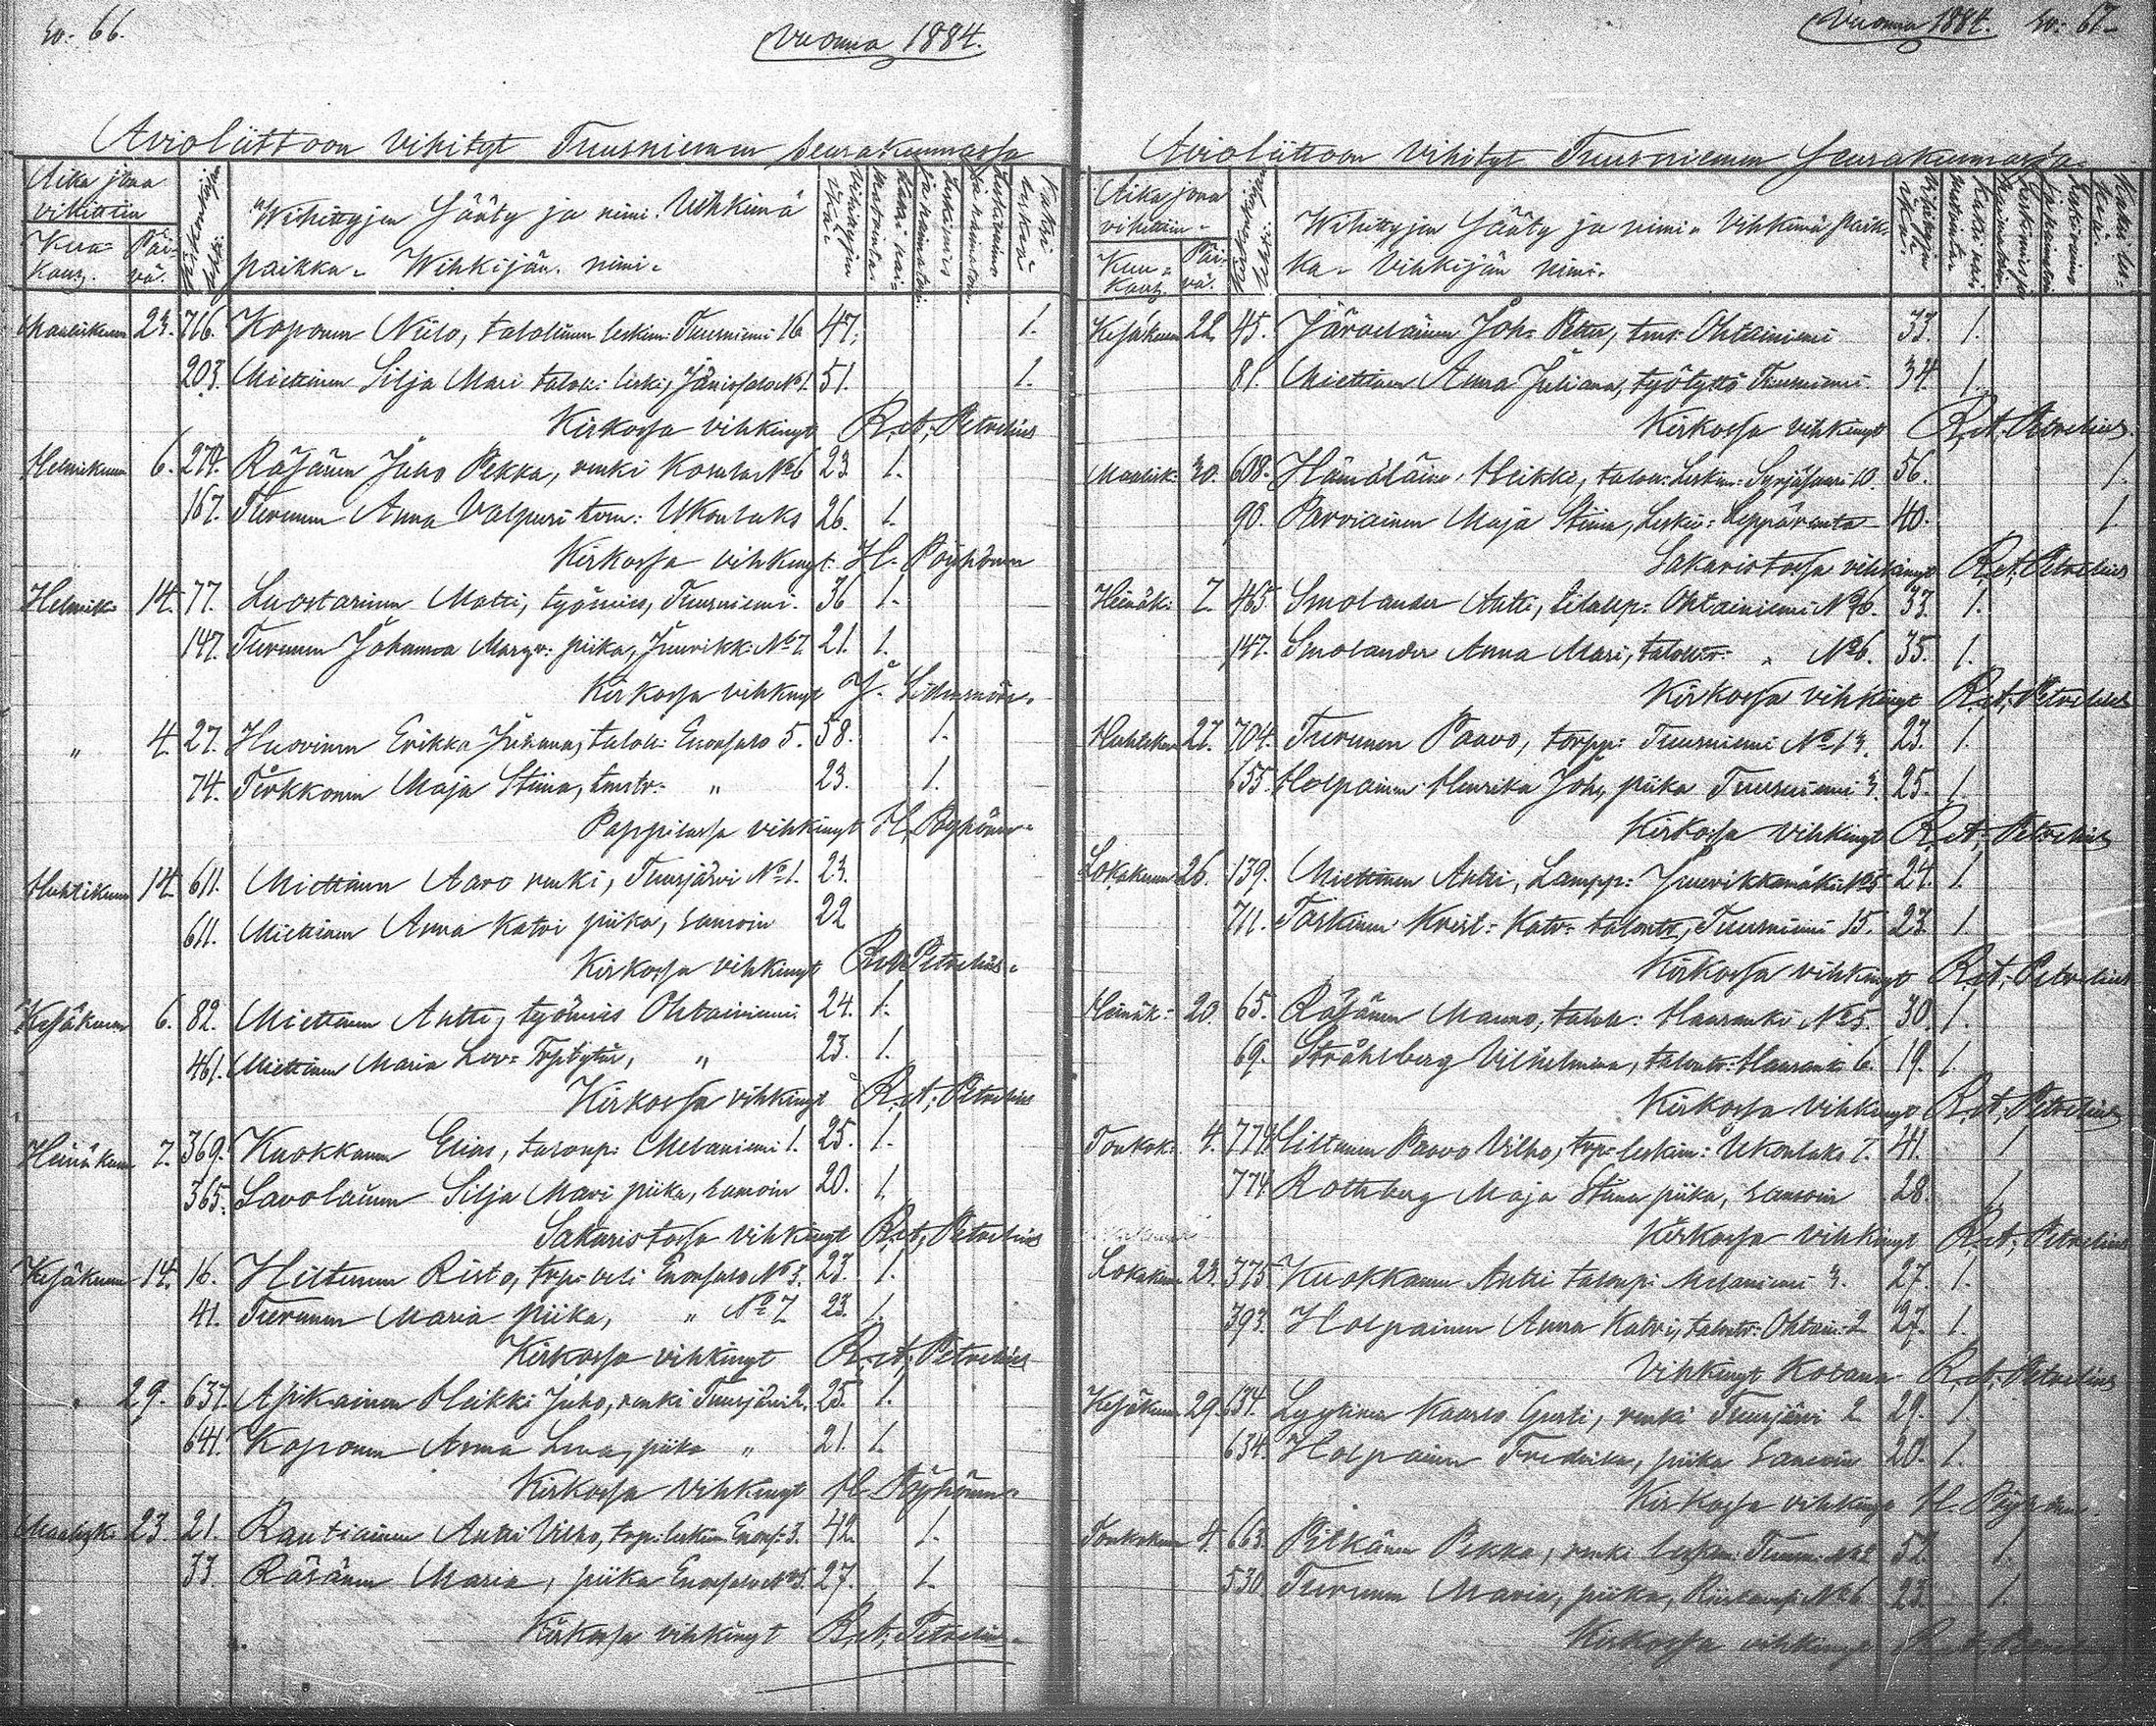 siv. 66.
Vuonna 1884.
Avioliittoon Vihityt Tuusniemen seurakunnassa
Aika jona vihittiin
Kuukausi. Päivä.
Wihittyjen Sääty ja nimi. Vihkimä
paikka. Wihkijän nimi.
Maaliskuun 23. 716. Koponen Niilo, talollinen leskim: Tuusniemi 16 47. 1.
203. Miettinen Silja Mari talon: leski, Jänissalo No 1. 51. 1.
Kirkossa vihkinyt R. A. Petrelius
Helmikuun 6. 279. Räsänen Juho Pekka, renki Kosula No 6 23 1.
167. Turunen Anna Valpuri torn: Ukonlaks 26. 1.
Kirkossa vihkinyt H. Pöyhönen
Helmik: 14. 77. Luostarinen Matti, työmies, Tuusniemi. 36 1.
147. Turunen Johanna Margr: piika, Juurikk: No 7. 21. 1.
Kirkossa vihkinyt J.
" 4. 27. Huovinen Erikka Juhana, talon: Enonsalo 5. 58. 1.
74. Tirkkonen Maja Stiina, tmstr: " 23. 1.
Pappilassa vihkinyt H. Pöyhönen
Huhtikuun 14. 611. Miettinen Aaro renki, Tuusjärvi No 1. 23.
611. Miettinen Anna Katri piika, samoin 22
Kirkossa vihkinyt R. A. Petrelius.
Kesäkuun 6. 82. Miettinen Antti, työmies Ohtaanniemi 24. 1.
461. Miettinen Maria Lov: " 23. 1.
Kirkossa vihkinyt R. A. Petrelius
Heinäkuun 7. 369. Kuokkanen Elias, talonp: Melaniemi 1. 25. 1.
365. Savolainen Silja Mari piika, samoin 20. 1.
Sakaristossa vihkinyt R. A. Petrelius
Kesäkuun 14. 16. Hiltunen Risto, torp: veli Enonsalo No 3. 23. 1.
41. Turunen Maria piika, " No 7 23. 1.
Kirkossa vihkinyt R. A. Petrelius
" 29. 637. Asikainen Heikki Juho, renki Tuusjärvi 2. 25. 1.
641. Koponen Anna Lena, piika " 21. 1.
Kirkossa vihkinyt H. Pöyhönen.
Maalisk: 23. 21. Rautiainen Antti Vilho, torp: leskim Enons: 3. 42. 1.
33. Räsänen Maria, piika Enonsalo No 5. 27. 1.
Kirkossa vihkinyt R. A. Petrelius.
Vuonna 1884. siv: 67.
Avioliittoon Vihityt Tuusniemen Seurakunnassa
Aika jona vihittiin.
Kuukausi. Päivä.
Wihittyjen Sääty ja nimi. Vihkimä paik-
ka. Vihkijän nimi.
Kesäkuun 22. 45. Järveläinen Joh: Petter, tms: Ohtaanniemi 33. 1.
81. Miettinen Anna Juliana, työtyttö Tuusniemi. 34. 1.
Kirkossa vihkinyt R. A. Petrelius.
Maalisk: 30. 608. Hämäläinen Heikki, talon: Leskim: Syrjäsaari 10. 56. 1.
90. Parviainen Maja Stiina, Leskiv: Leppäranta 40. 1.
Sakaristossa vihkinyt R. A. Petrelius
Heinäk: 7. 465. Smolander Antti, Ohtaanniemi No 26. 33. 1.
147. Smolander Anna Mari, talontr: " No 6. 35. 1.
Kirkossa vihkinyt R. A. Petrelius
Huhtikuun 27. 704. Turunen Paavo, torpp: Tuusniemi No 13. 23. 1.
655. Holpainen Henrika Joh, piika Tuusniemi 3. 25. 1.
Kirkossa vihkinyt R. A. Petrelius
Lokakuun 26. 139. Miettinen Antti, Lampp: Juurikkamäki No 5 24. 1.
711. Taskinen Krist: Katr: talontr, Tuusniemi 15. 23. 1.
Kirkossa vihkinyt R. A. Petrelius
Heinäk: 20. 65. Räsänen Mauno, talon: Hauranki No 5. 30. 1.
69. Stråhlberg Vilhelmina, talontr: Hauranki 6. 19. 1.
Kirkossa Vihkinyt R. A. Petrelius
Toukok: 4. 774. Hiltunen Paavo Vilho, torp: leskim: Ukonlaks 7. 41. 1
774. Rothberg Maja Stiina piika, samoin 28. 1.
Kirkossa vihkinyt R. A. Petrelius
Lokakuun 23. 375. Kuokkanen Antti talonp: Melaniemi 3. 27. 1.
393. Holpainen Anna Katri, talontr: Ohtaan: 2 27. 1.
Vihkinyt Kotona R. A. Petrelius
Kesäkuun 29. 634. Lyytinen Kaarlo Gusti, renki Tuusjärvi 2 29. 1.
634. Holpainen Fredrika, piika Samoin 20. 1.
Kirkossa vihkinyt H. Pöyhönen.
Toukokuun 4. 663. Pitkänen Pekka, renki leskim. 52. 1.
530. Turunen Maria, piika, No 6 23. 1.
Kirkossa vihkinyt